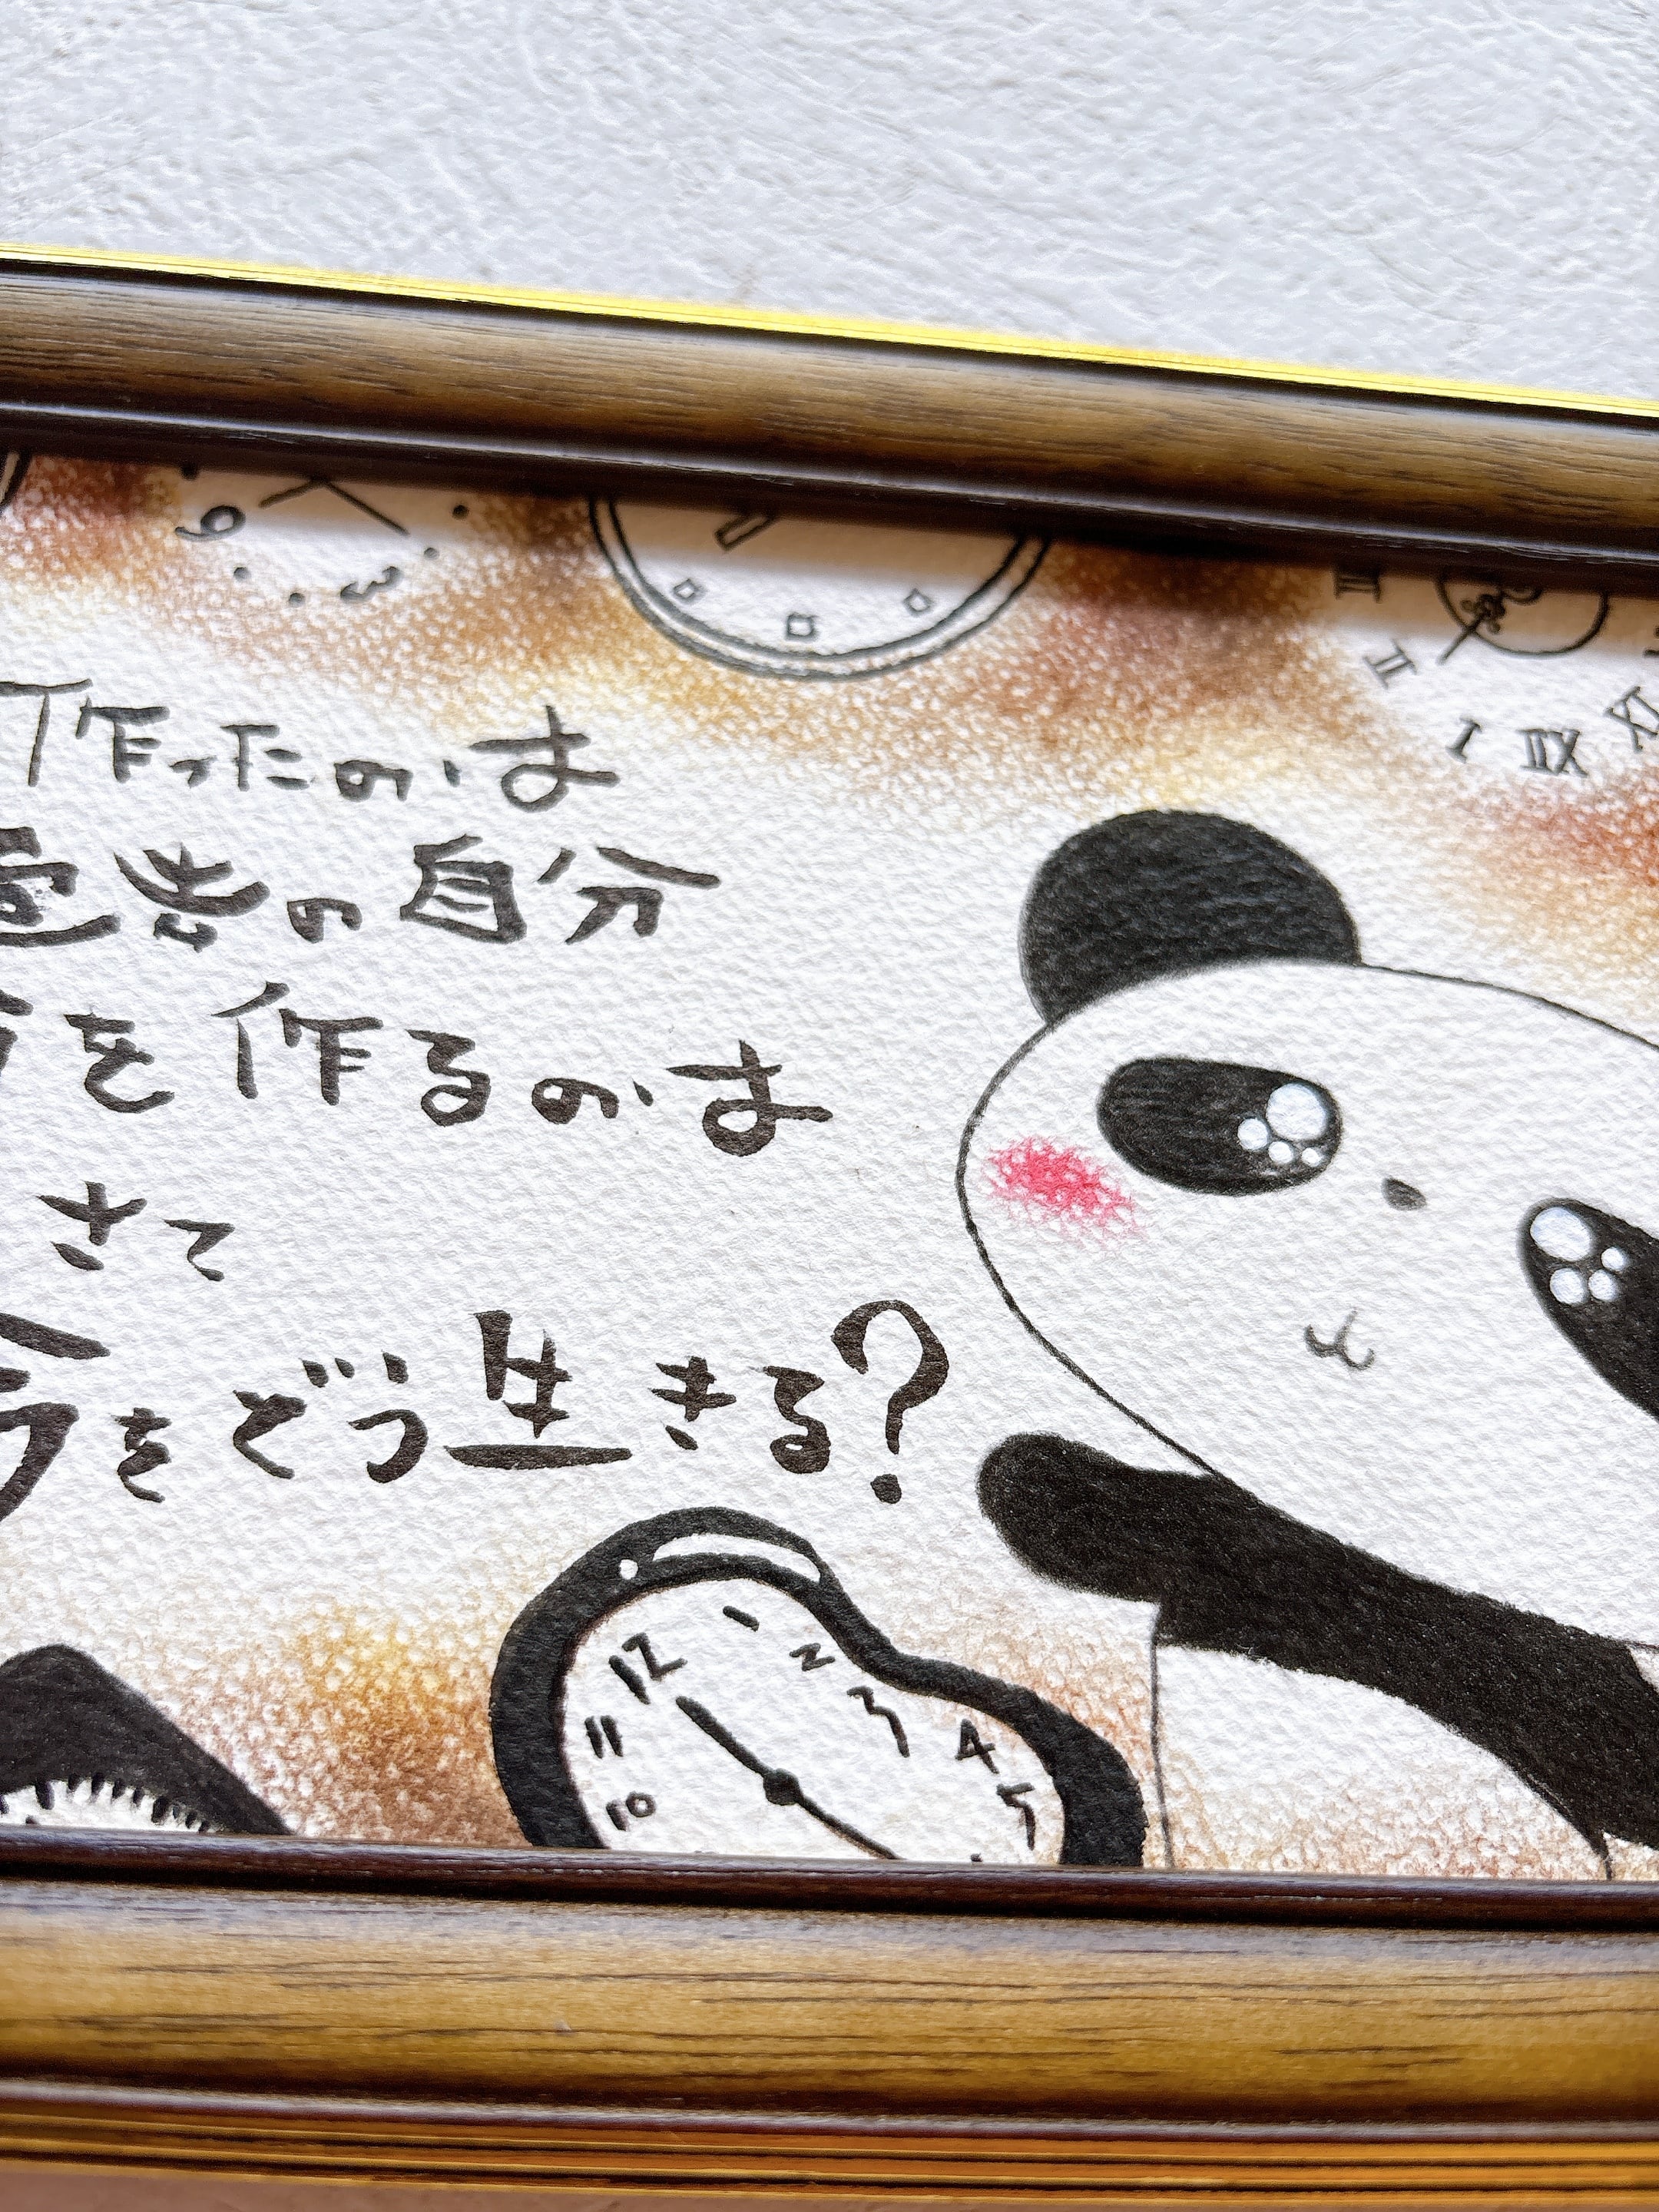 9 3
III II I XII XI
作ったのは
過去の自分
を作るのは
さて
今をどう生きる?
12 1 2 3 4 5
11
10